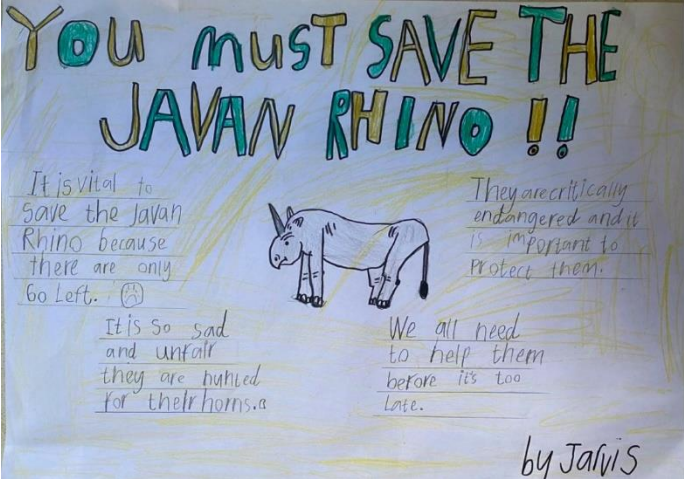 YOU must SAVE THE
JAVAN RHINO !!
It is vital to
save the Javan
Rhino because
there are only
60 left.
They are critically
endangered and it
is important to
protect them.
It is so sad
and unfair
they are hunted
for their horns.
We all need
to help them
before it's too
late.
by Jarvis